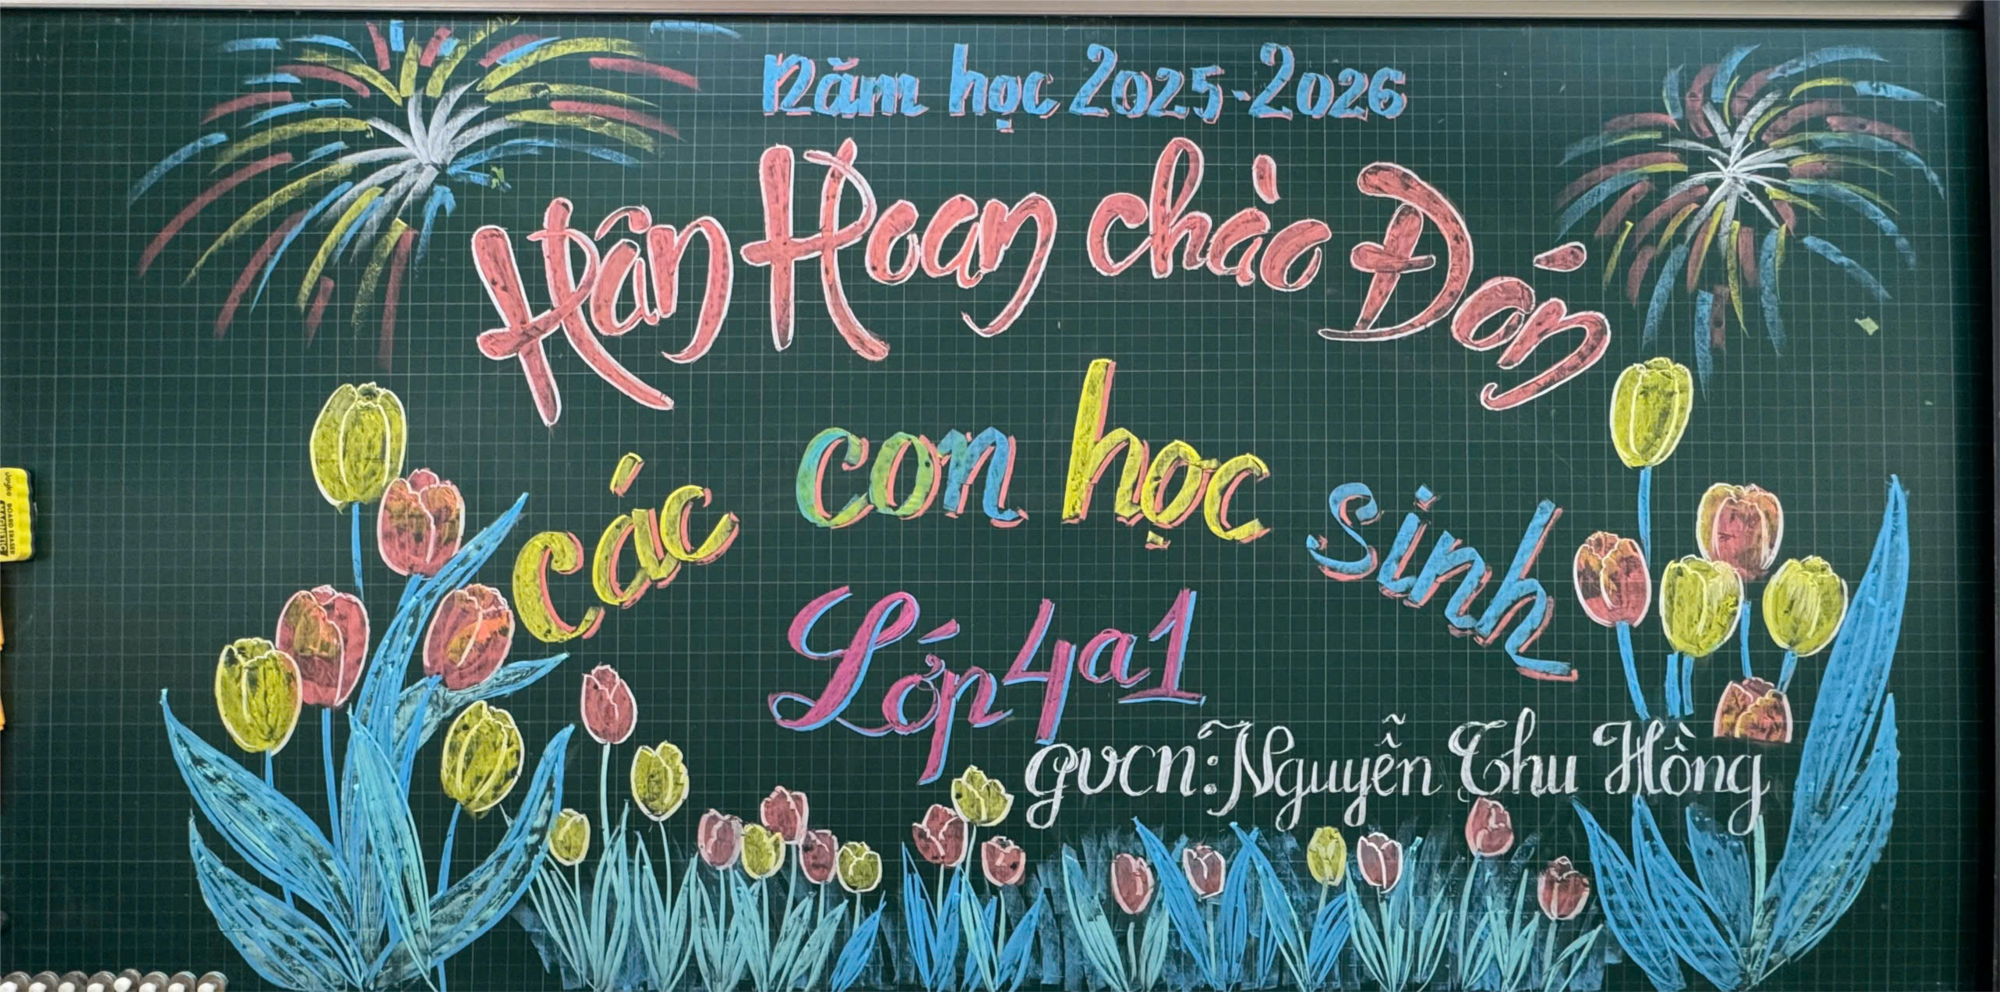 Năm học 2025-2026
Hân Hoan chào Đón
các con học sinh
Lớp 4a1
gvcn: Nguyễn Thu Hồng
BOARD ERASER